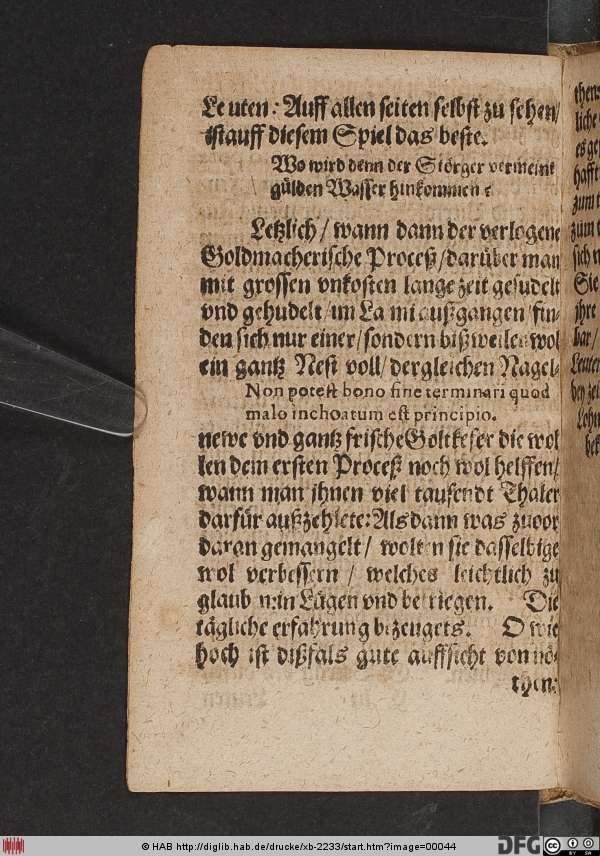 Leuten: Auff allen seiten selbst zu sehen/
istauff diesem Spiel das beste.
Wo wird denn der Störger vermeint
gülden Wasser hinkommen?
Letzlich / wann dann der verlogene
Goldmacherische Proceß / darüber man
mit grossen vnkosten lange zeit gesudelt
vnd gehudelt / im La mi außgangen / fin-
den sich nur einer / sondern bißweilen wol
ein gantz Nest voll / dergleichen Nagel-
Non potest bono fine terminari quod
malo inchoatum est principio.
newe vnd gantz frische Goltkefer die wol
len dem ersten Proceß noch wol helffen /
wann man jhnen viel tausendt Thaler
darfür außzehlete: Als dann was zuvor
daran gemangelt / wolten sie dasselbige
wol verbessern / welches leichtlich zu
glauben: in Lügen vnd betriegen. Die
tägliche erfahrung bezeugets. O wie
hoch ist dißfals gute auffsicht von nö-
then:
thens
liche
es ge
hafft
zum t
zum t
sich
Sie
jhre
bar /
Leuten
bey zei
Lohn
bek
© HAB http://diglib.hab.de/drucke/xb-2233/start.htm?image=00044
DFG
CC BY SA